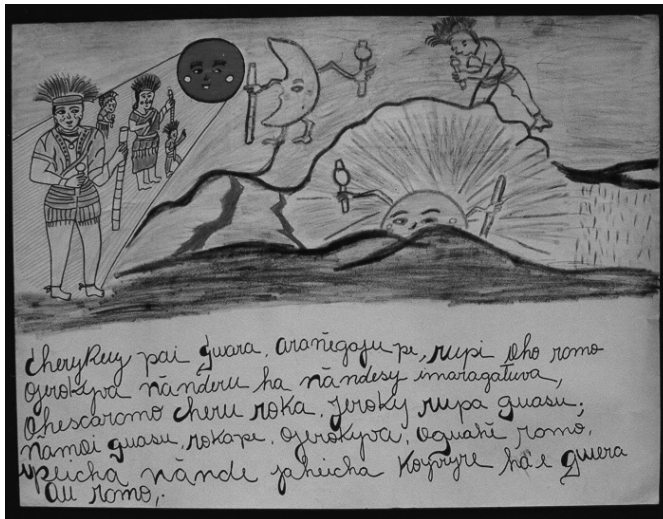 cheryKuy pai g̃wara, arañegaju pe, rupi oho romo
ojerokyva ñanderu ha ñandesy imaragatuva,
Ohescaromo cheru roka, jeroky rupa guasu;
ñamoi guasu, rokape, ojerokyva, oguahẽ romo,
upeicha ñande jaheicha Koyvyre ha'e gwera
au romo,.